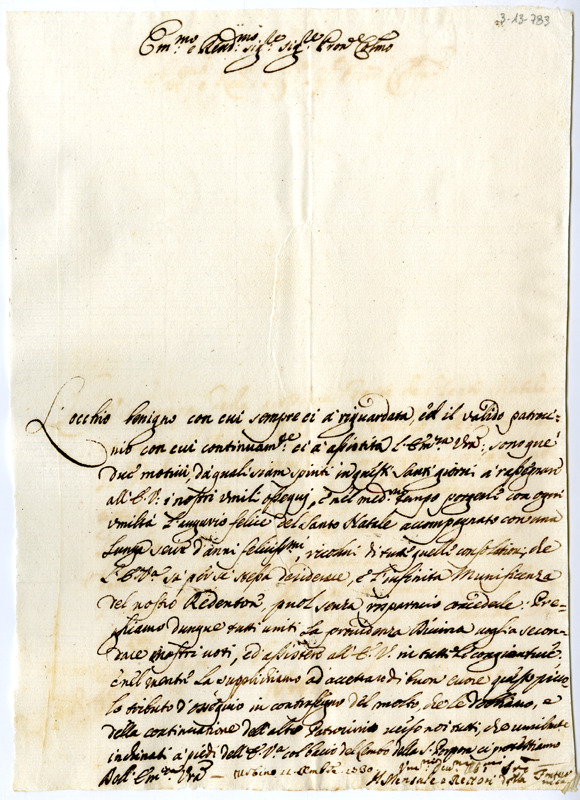 3-13-783
Em.mo e Rev.mo Sig.re Sig.re Pron.e Col.mo
L'occhio benigno con cui sempre ci à riguardata, ed il valido patroci=
nio con cui continuam.te ci à assistita l'Em.za Vra; sono que
due motivi, da quali siam spinti in questi Santi giorni à rassegnare
all'E.V. i nostri umili ossequj, e nel med.mo tempo porgerle con ogni
umiltà l'augurio felice del Santo Natale accompagnato con una
lunga serie d'anni felicissimi, ricolmi di tutte quelle consolazioni, che
l'E.V.a sà per se stessa desiderare, e l'infinita Munificenza
del nostro Redentore, puol senza risparmio concederle. Pre=
ghiamo dunque tutti uniti la providenza Divina voglia secon=
dare i nostri voti, ed assistere all'E.V. in tutte le congiunture
e nel mentre la supplichiamo ad accettare di buon cuore questo picco
lo tributo d'ossequio in contrasegno del molto, che le dobbiamo, e
della continuazione dell'alto Patrocinio verso noi tutti, che umilmente
inchinati a piedi dell'E.V.a col bacio del Lembo della S. Porpora ci protestiamo
Dell'Em.za Vra
Urbino